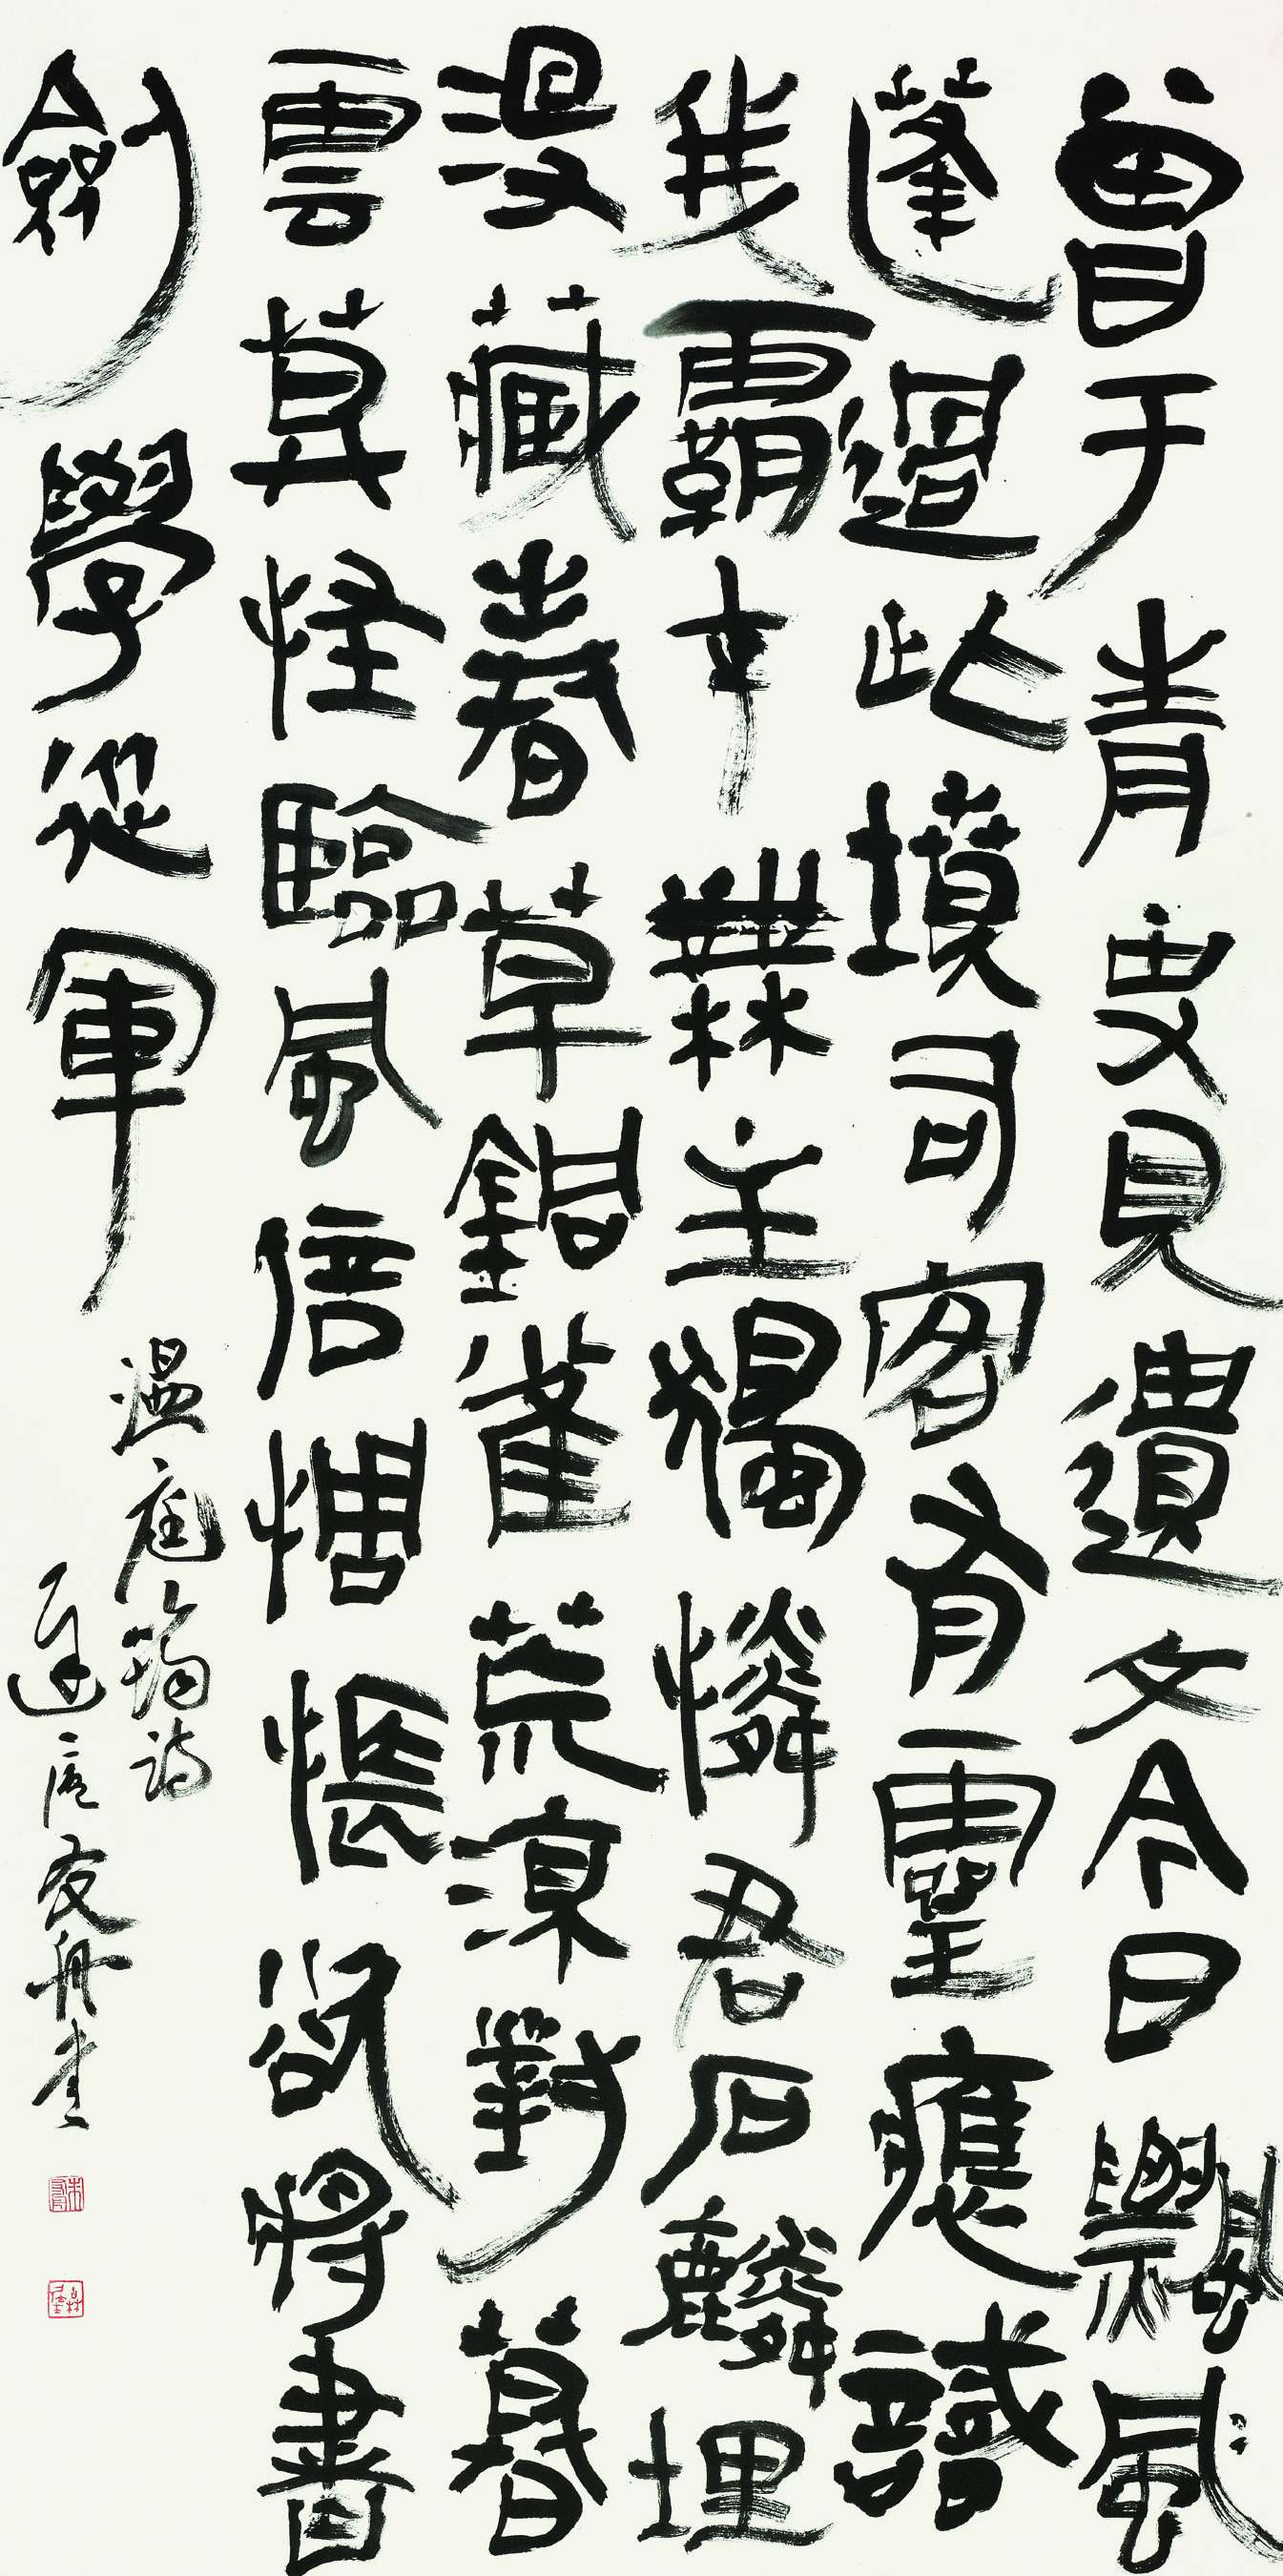 曾于青史見遺文今日飄風
蓬過此墳司客有靈應識
我霸才無主獨憐君石麟埋
沒藏春草銅雀荒涼對暮
雲莫怪臨風倍惆悵欲將書
劍學從軍
溫庭筠詩
友舟堂